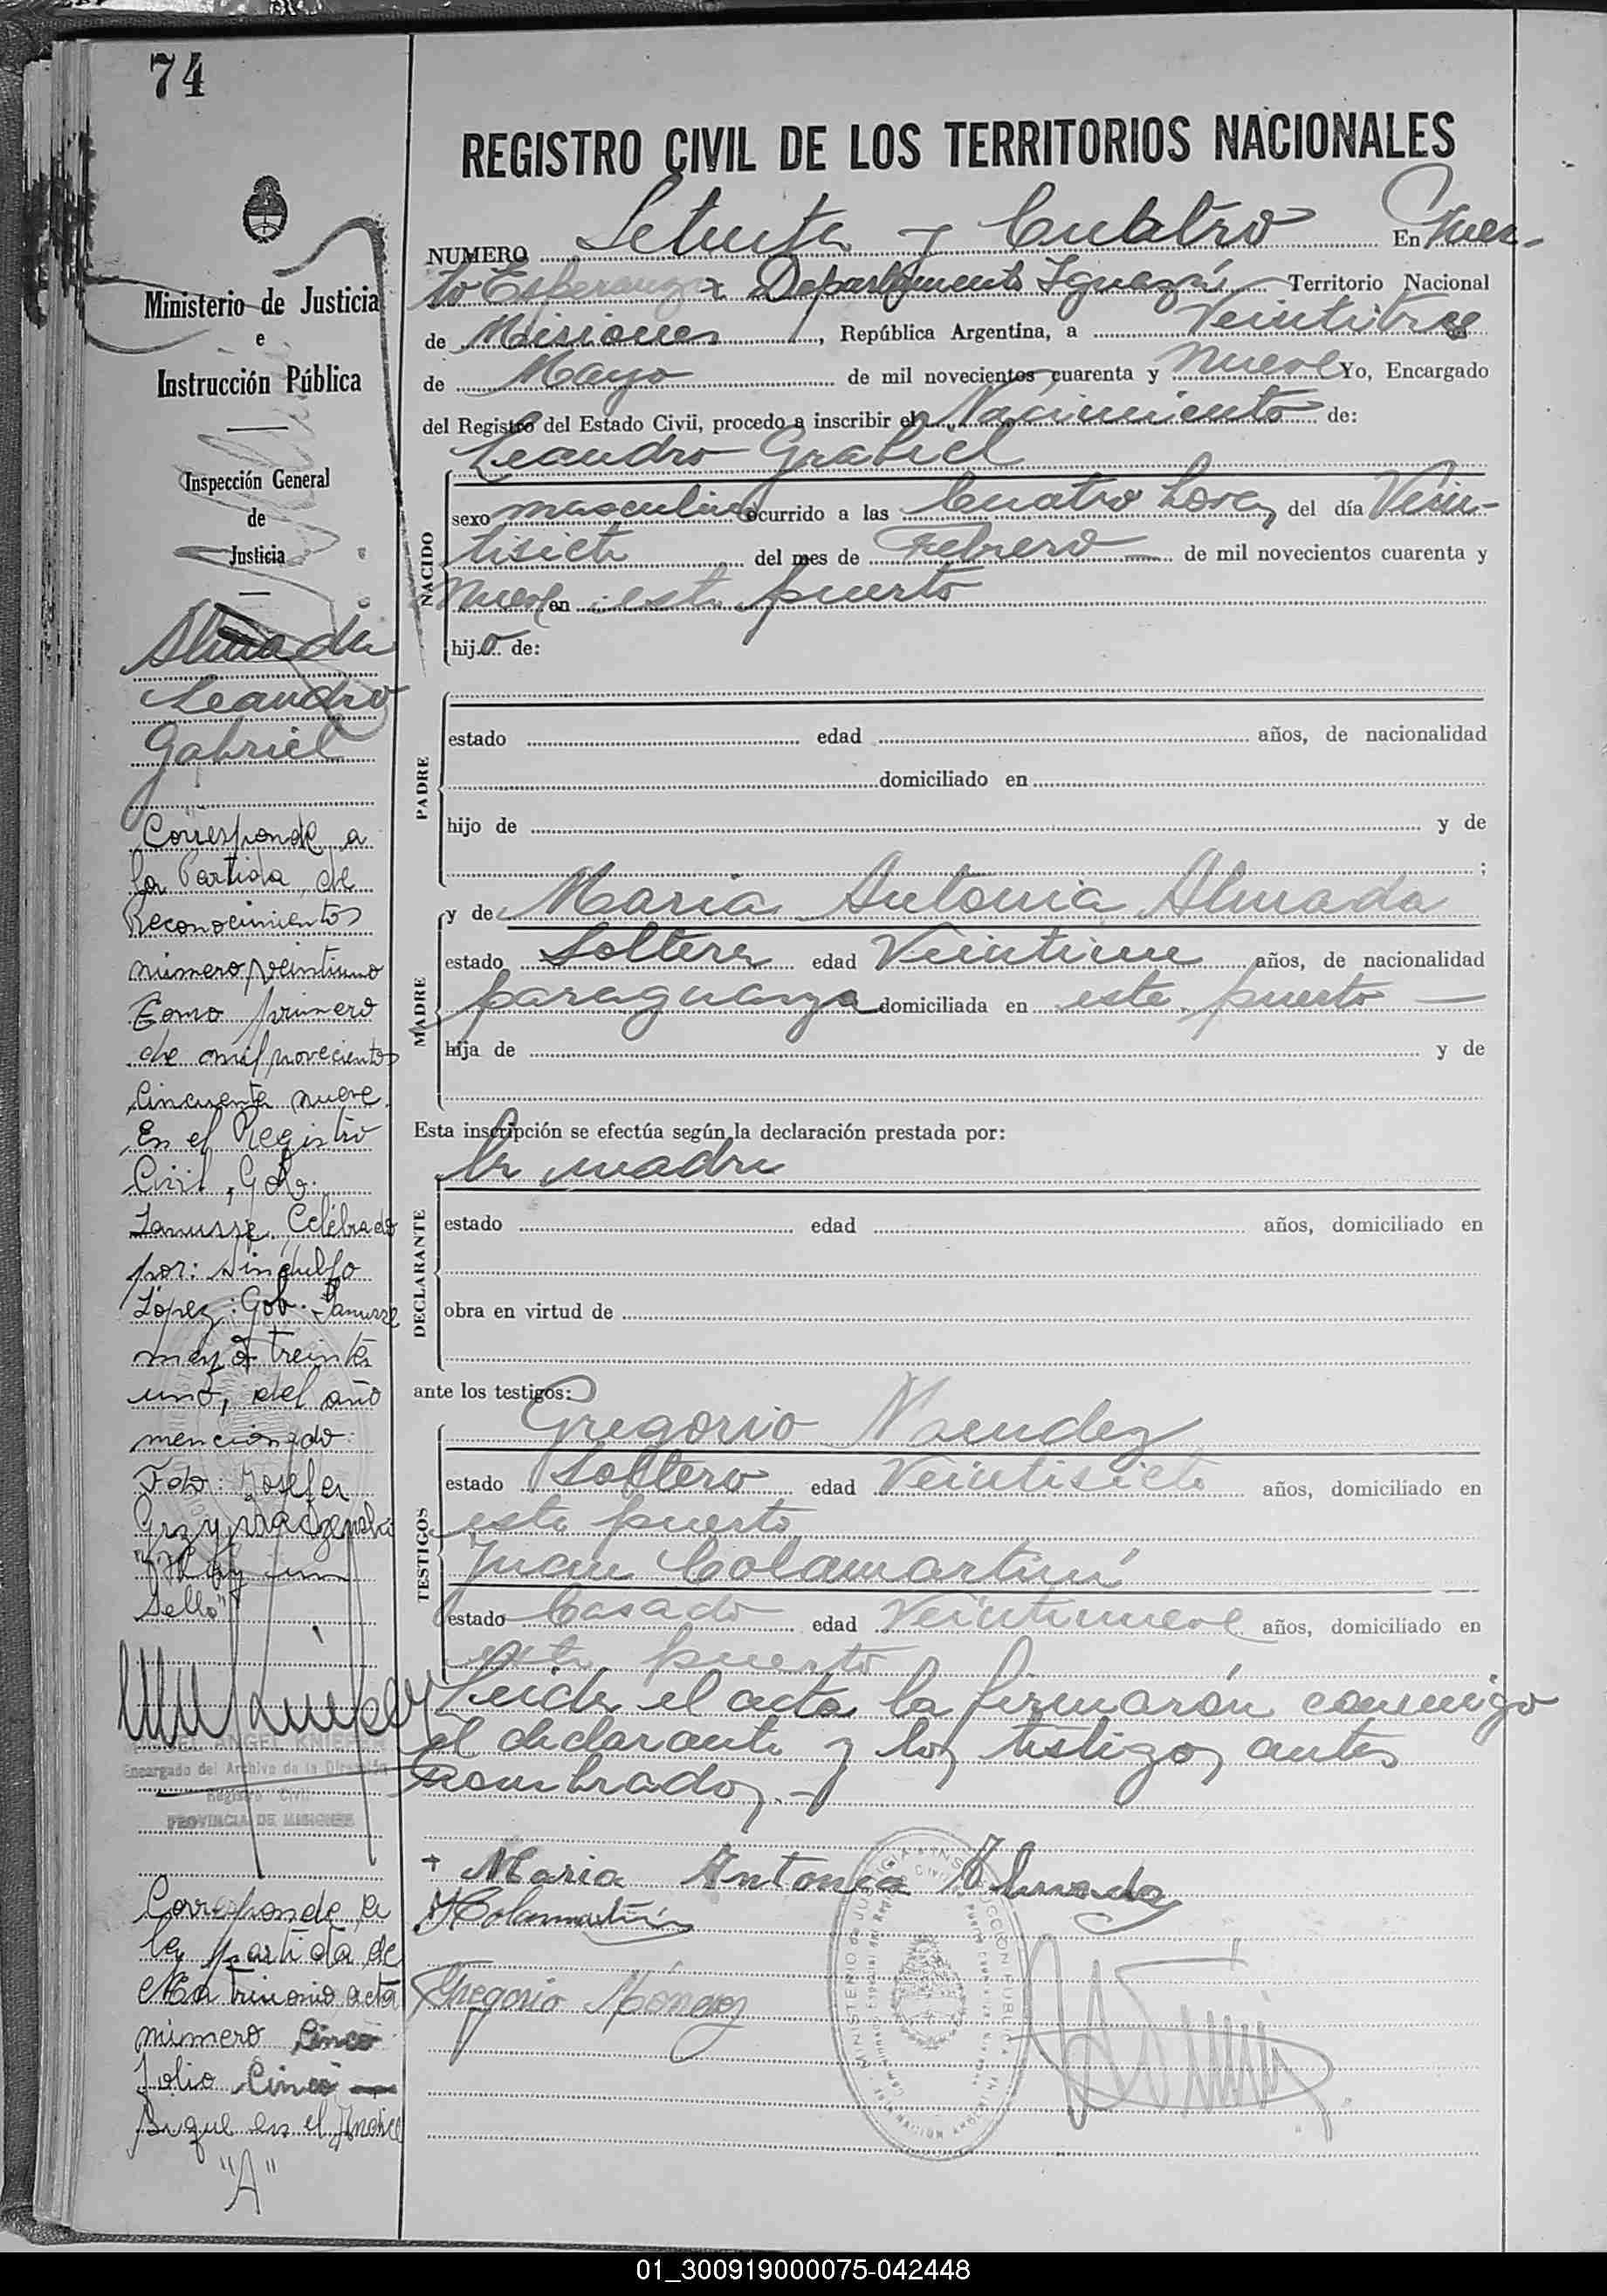 74
REGISTRO CIVIL DE LOS TERRITORIOS NACIONALES
NUMERO Setenta y Cuatro En Puer-
to Esperanza Departamento Iguazú Territorio Nacional
de Misiones, República Argentina, a Veintitres
de Mayo de mil novecientos cuarenta y nueve Yo, Encargado
del Registro del Estado Civil, procedo a inscribir el Nacimiento de:
Leandro Grabiel
NACIDO
sexo masculino ocurrido a las Cuatro horas del día Vein-
tisiete del mes de Febrero de mil novecientos cuarenta y
nueve en este puerto
hijo de:
PADRE
estado edad años, de nacionalidad
domiciliado en
hijo de y de
;
MADRE
y de Maria Antonia Almada
estado Soltera edad años, de nacionalidad
paraguaya domiciliada en este puerto
hija de y de
Esta inscripción se efectúa según la declaración prestada por:
la madre
DECLARANTE
estado edad años, domiciliado en
obra en virtud de
ante los testigos:
TESTIGOS
Gregorio Mendez
estado Soltero edad Veintisiete años, domiciliado en
este puerto
Juan Colamartini
estado Casado edad Veintinueve años, domiciliado en
este puerto
Leida el acta la firmarón conmigo
el declarante y los testigos antes
nombrados.-
+ Maria Antonia Almada
Colamartini
Gregorio Méndez
Ministerio de Justicia
e
Instrucción Pública
Inspección General
de
Justicia
Almada
Leandro
Gabriel
Corresponde a
la Partida de
Reconocimientos
número veintiuno
Tomo primero
de mil novecientos
Cincuenta nueve.
En el Registro
Civil, Gob.
Lanusse. Celebrado
por: Sindulfo
López: Gob. Lanusse
mayo treinta
uno, del año
mencionado:
Fdo: Josefa
"Hay un
Sello"
MIGUEL ANGEL KNIEPER
Encargado del Archivo de la Dirección
Registro Civil
PROVINCIA DE MISIONES
Corresponde a
la partida de
Matrimonio acta
número Cinco
folio Cinco
Sigue en el Indice
"A"
01_300919000075-042448